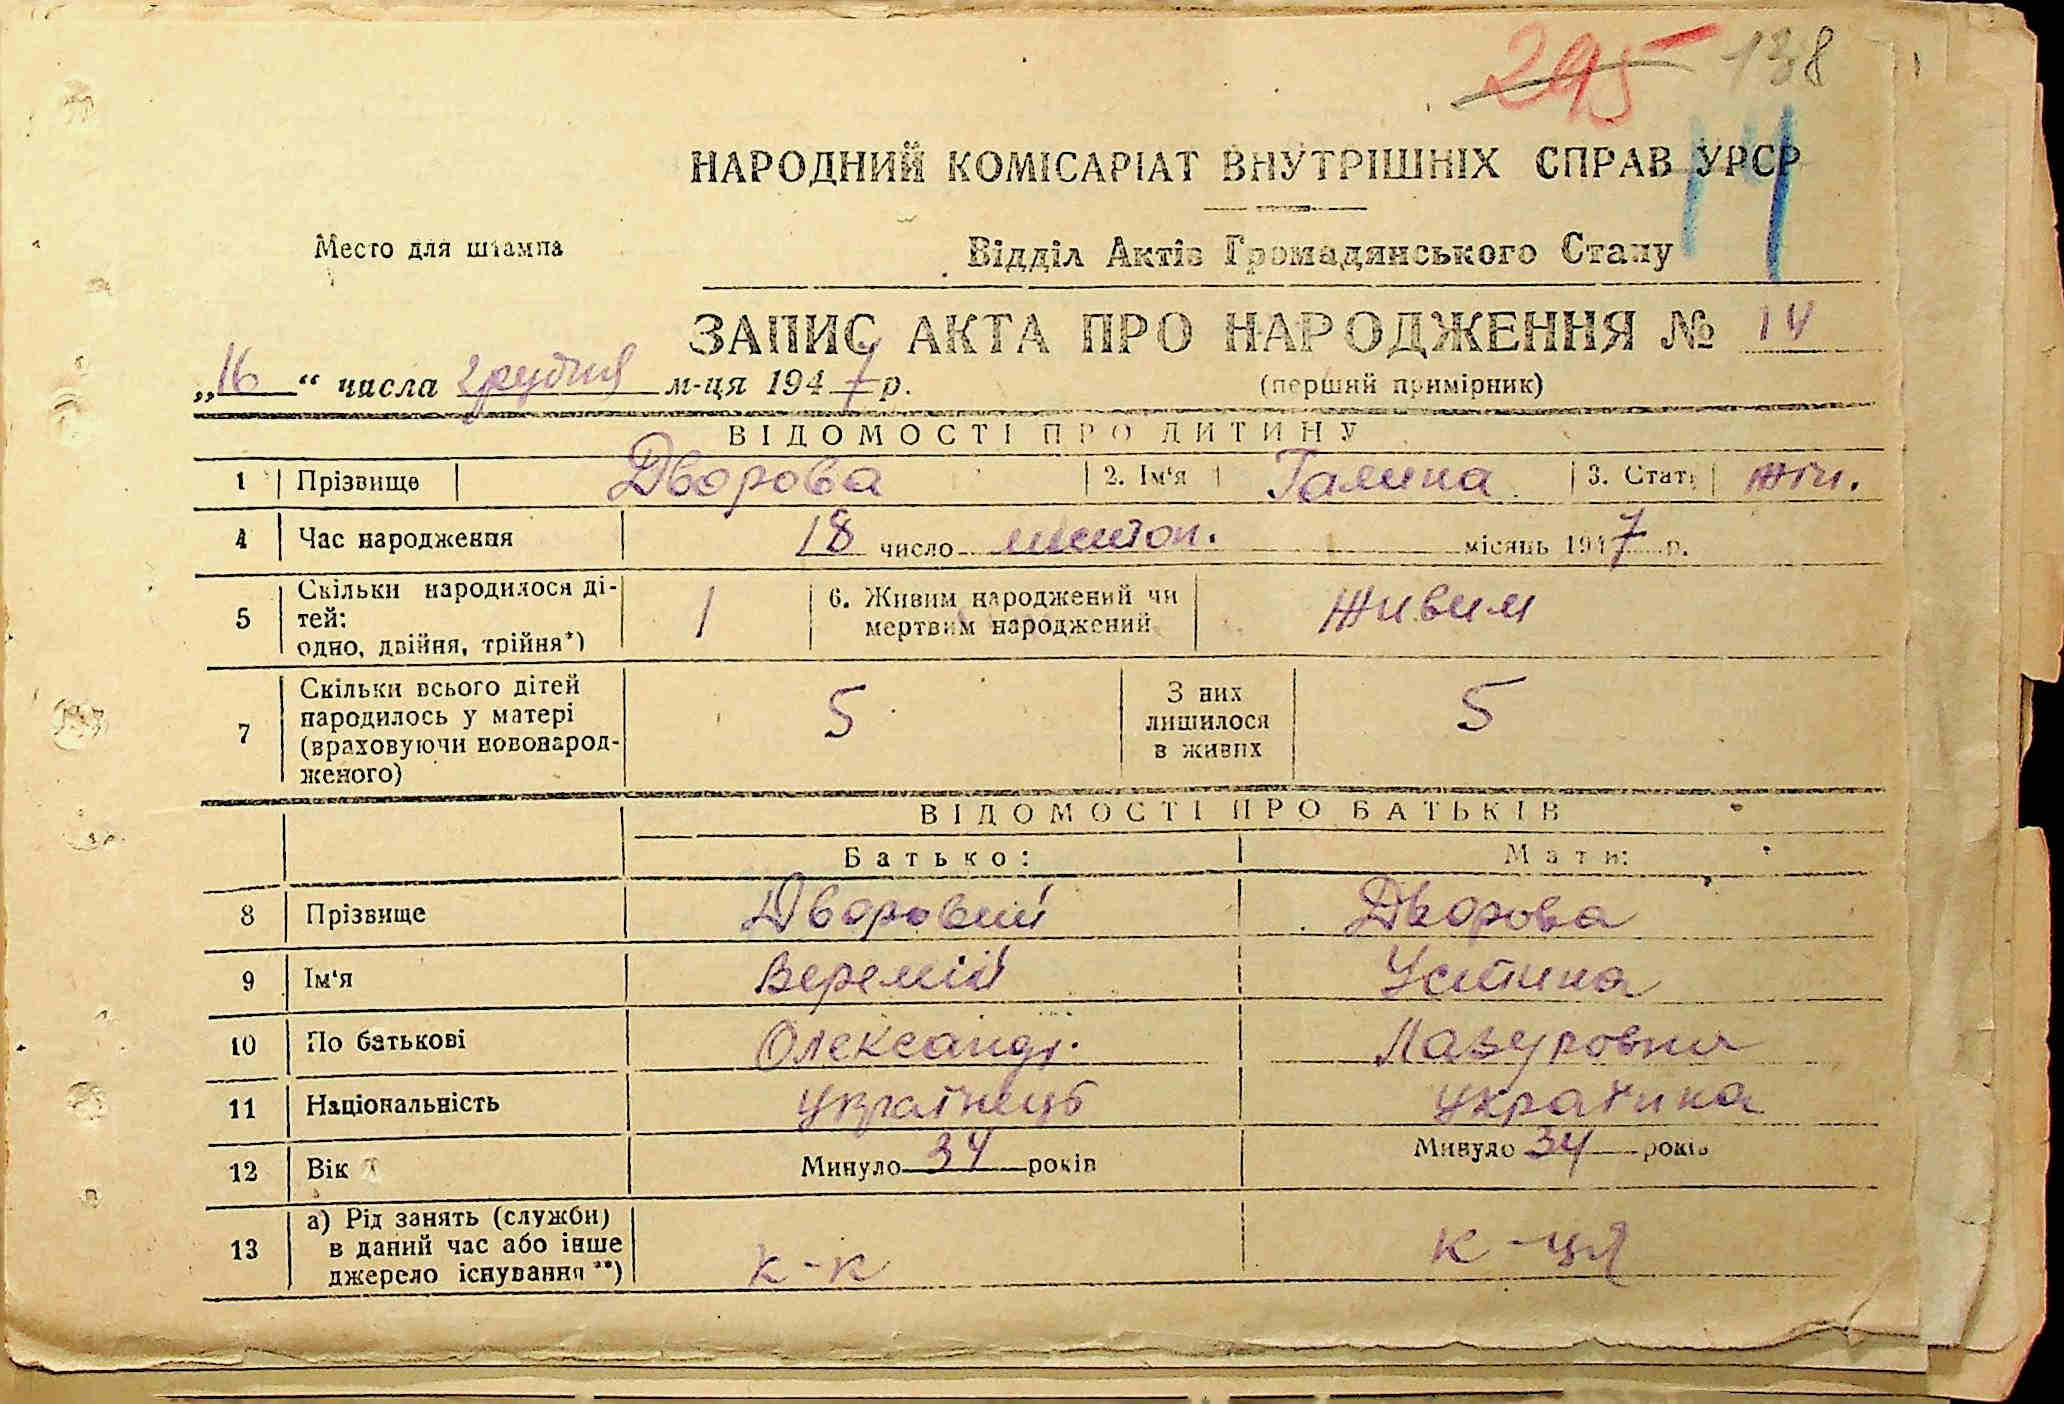 295 138
НАРОДНИЙ КОМІСАРІАТ ВНУТРІШНІХ СПРАВ УРСР
14
Место для штампа
Відділ Актів Громадянського Стану
ЗАПИС АКТА ПРО НАРОДЖЕННЯ № 14
„16“ числа грудня м-ця 1947 р. (перший примірник)
ВІДОМОСТІ ПРО ДИТИНУ
1 Прізвище Дворова 2. Ім'я Галина 3. Стать жін.
4 Час народження 18 число листоп. місяць 1947 р.
5 Скільки народилося ді-
тей:
одно, двійня, трійня*) 1 6. Живим народжений чи
мертвим народжений Живим
7 Скільки всього дітей
народилось у матері
(враховуючи новонарод-
женого) 5 З них
лишилося
в живих 5
ВІДОМОСТІ ПРО БАТЬКІВ
Батько: Мати:
8 Прізвище Дворовий Дворова
9 Ім'я Веремій Устина
10 По батькові Олександр. Лазуровна
11 Національність Українець Українка
12 Вік Минуло 34 років Минуло 34 років
13 а) Рід занять (служби)
в даний час або інше
джерело існування**) к-к к-ця